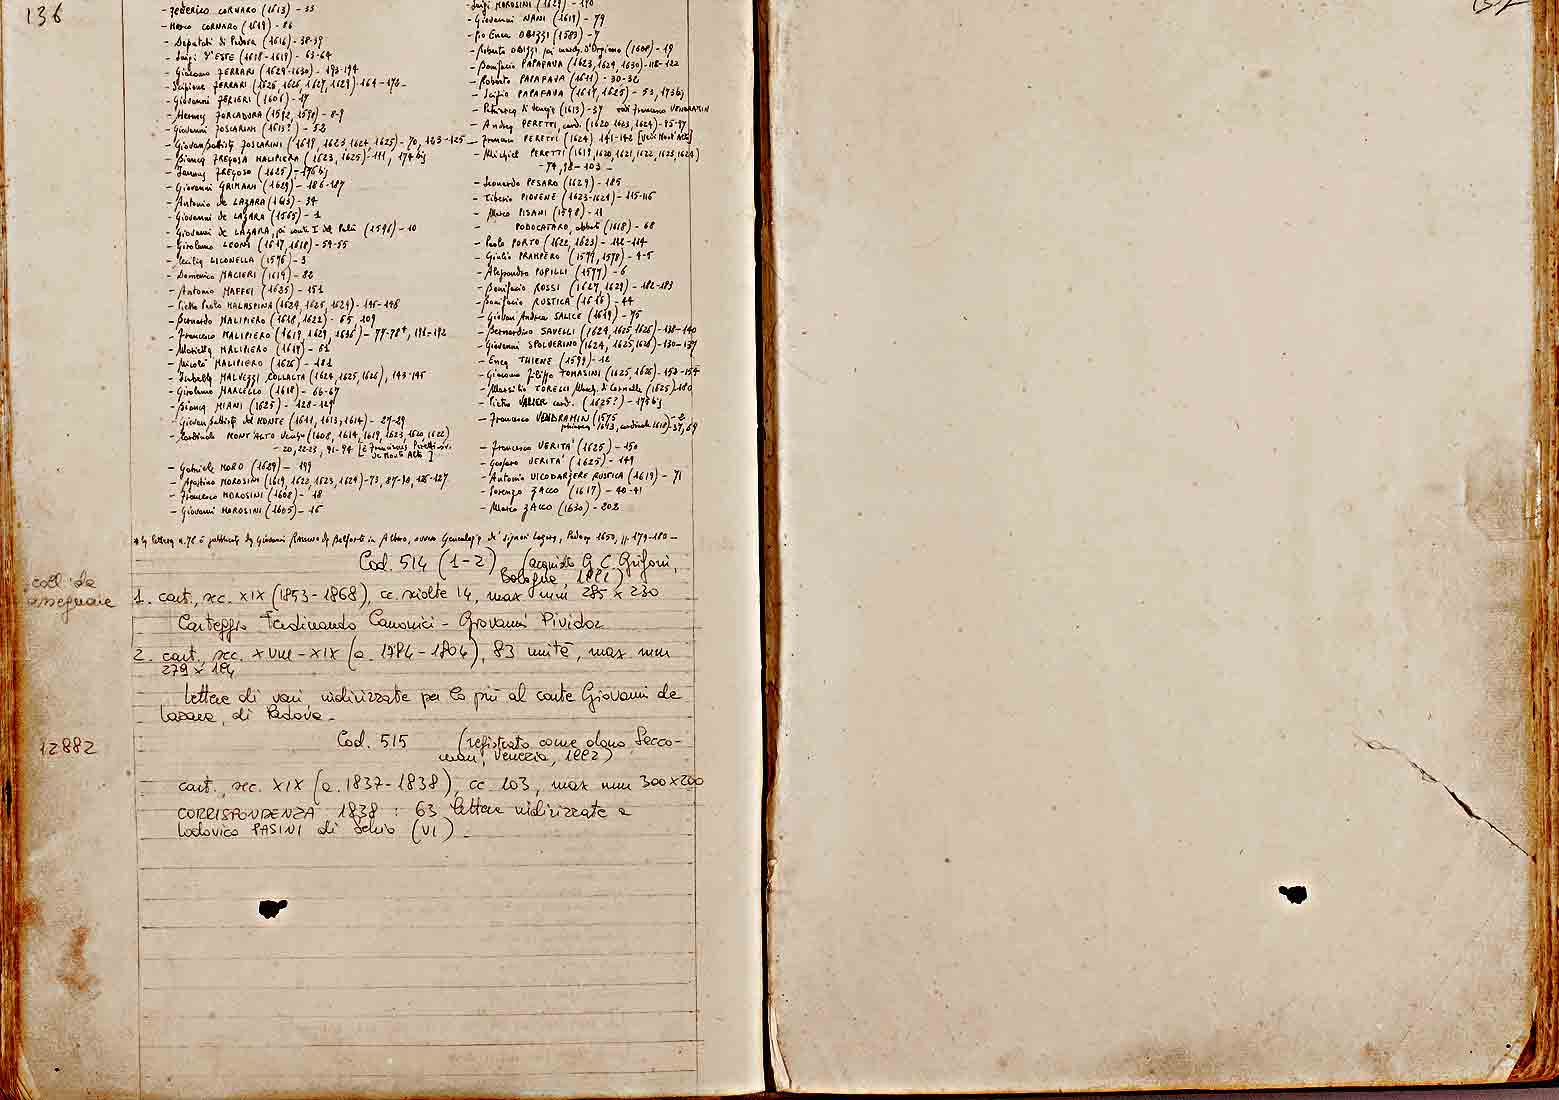 136
- Federico CORNARO (1613) - 33
- Marco CORNARO (1619) - 86
- Deputati di Padova (1616) - 38-39
- Luigi d'ESTE (1618-1619) - 63-64
- Giacomo FERRARI (1629-1630) - 193-194
- Scipione FERRARI (1625, 1626, 1627, 1629) - 164-176 -
- Giovanni (1606) - 17
- FORZADURA (1592, 1598) - 8-9
- Giovanni FOSCARINI (1613?) - 52
- Giovan Battista FOSCARINI (1619, 1623, 1624, 1625) - 70, 123-125
- Bianca FREGOSA MALIPIERA (1623, 1625) - 111, 174 bis
- FREGOSO (1625) - 176 bis
- Giovanni GRIMANI (1629) - 186-187
- Antonio de LAZARA (1613) - 34
- Giovanni de LAZARA (1565) - 1
- Giovanni de LAZARA, poi conte I del (1596) - 10
- Girolamo LEONI (1617, 1618) - 54-55
- LIGONELLA (1576) - 3
- Domenico (1619) - 82
- Antonio MAFFEI (1625) - 151
- Pietro Paolo MALASPINA (1624, 1625, 1629) - 146-148
- Bernardo MALIPIERO (1618, 1622) - 65, 109
- Francesco MALIPIERO (1619, 1629, 1636) - 77-78*, 191-192
- MALIPIERO (1617) - 61
- Nicolò MALIPIERO (1626) - 181
- Isabella MALVEZZI COLLALTA (1624, 1625, 1626), 143-145
- Girolamo MARCELLO (1618) - 66-67
- Bianca MIANI (1625) - 128-129
- Giovan Battista del MONTE (1611, 1613, 1614) - 27-29
- Cardinale MONT'ALTO (1608, 1614, 1619, 1623, 1620, 1622)
- 20, 22-23, 91-94 [è Francesco Peretti
de Mont'Alto]
- Gabriele MORO (1629) - 199
- Agostino MOROSINI (1619, 1620, 1623, 1624) - 73, 87-90, 126-127
- Francesco MOROSINI (1608) - 18
- Giovanni MOROSINI (1605) - 16
- Luigi MOROSINI (1629) - 190
- Giovanni NANI (1619) - 79
- Pio Enea OBIZZI (1583) - 7
- Roberto OBIZZI poi march. d'Orgiano (1608) - 19
- Bonifacio PAPAFAVA (1623, 1629, 1630) - 118-122
- Roberto PAPAFAVA (1611) - 30-32
- Scipio PAPAFAVA (1617, 1625) - 53, 173 bis
- di Venezia (1613) - 37 vedi Francesco VENDRAMIN
- Andrea PERETTI, card. (1620, 1623, 1624) - 95-97
- Francesco PERETTI (1624) - 141-142 [vedi Mont'Alto]
- Michiel PERETTI (1619, 1620, 1621, 1622, 1623, 1624)
- 74, 98-103 -
- Leonardo PESARO (1629) - 185
- Tiberio PIOVENE (1623-1624) - 115-116
- Marco PISANI (1598) - 11
- PODOCATARO, abbate (1618) - 68
- Paolo PORTO (1622, 1623) - 112-114
- Giulio PRAMPERO (1577, 1578) - 4-5
- Alessandro PUPILLI (1577) - 6
- Bonifacio ROSSI (1627, 1629) - 182-183
- Bonifacio RUSTICA (1616) - 44
- Giovan Andrea SALICE (1619) - 75
- Bernardino SAVELLI (1624, 1625, 1626) - 138-140
- Giovanni SPOLVERINO (1624, 1625, 1626) - 130-137
- Enea THIENE (1599) - 12
- Giacomo Filippo TOMASINI (1625, 1626) - 153-154
- Marsilio TORELLI, March. di (1625) - 180
- Pietro VALIER card. (1625?) - 175 bis
- Francesco VENDRAMIN (1575) - 2
1613, cardinale 1618) - 37, 69
- Francesco VERITA' (1625) - 150
- Gasparo VERITA' (1625) - 149
- Antonio VIGODARZERE RUSTICA (1619) - 71
- Lorenzo ZACCO (1617) - 40-41
- Marco ZACCO (1630) - 202
* la lettera n. 78 è pubblicata da Giovanni da Belforte in ovvero Genealogia de' signori Lazara, Padova 1650, pp. 179-180 -
Cod. 514 (1-2) (acquisto G. C. Grifoni,
Bologna, 1881)
coll. da
assegnare
1. cart., sec. XIX (1853-1868), cc. sciolte 14, max mm 285 x 230
Carteggio Ferdinando Canonici - Giovanni Pividor
2. cart., sec. XVIII-XIX (a. 1784-1804), 83 unità, max mm
279 x 184
Lettere di vari indirizzate per lo più al conte Giovanni de
Lazara, di Padova -
12882
Cod. 515 (registrato come dono Secco-
mani, Venezia, 1882)
cart., sec. XIX (a. 1837-1838), cc. 103, max mm 300 x 200
CORRISPONDENZA 1838 : 63 lettere indirizzate a
Lodovico PASINI di Schio (VI) -